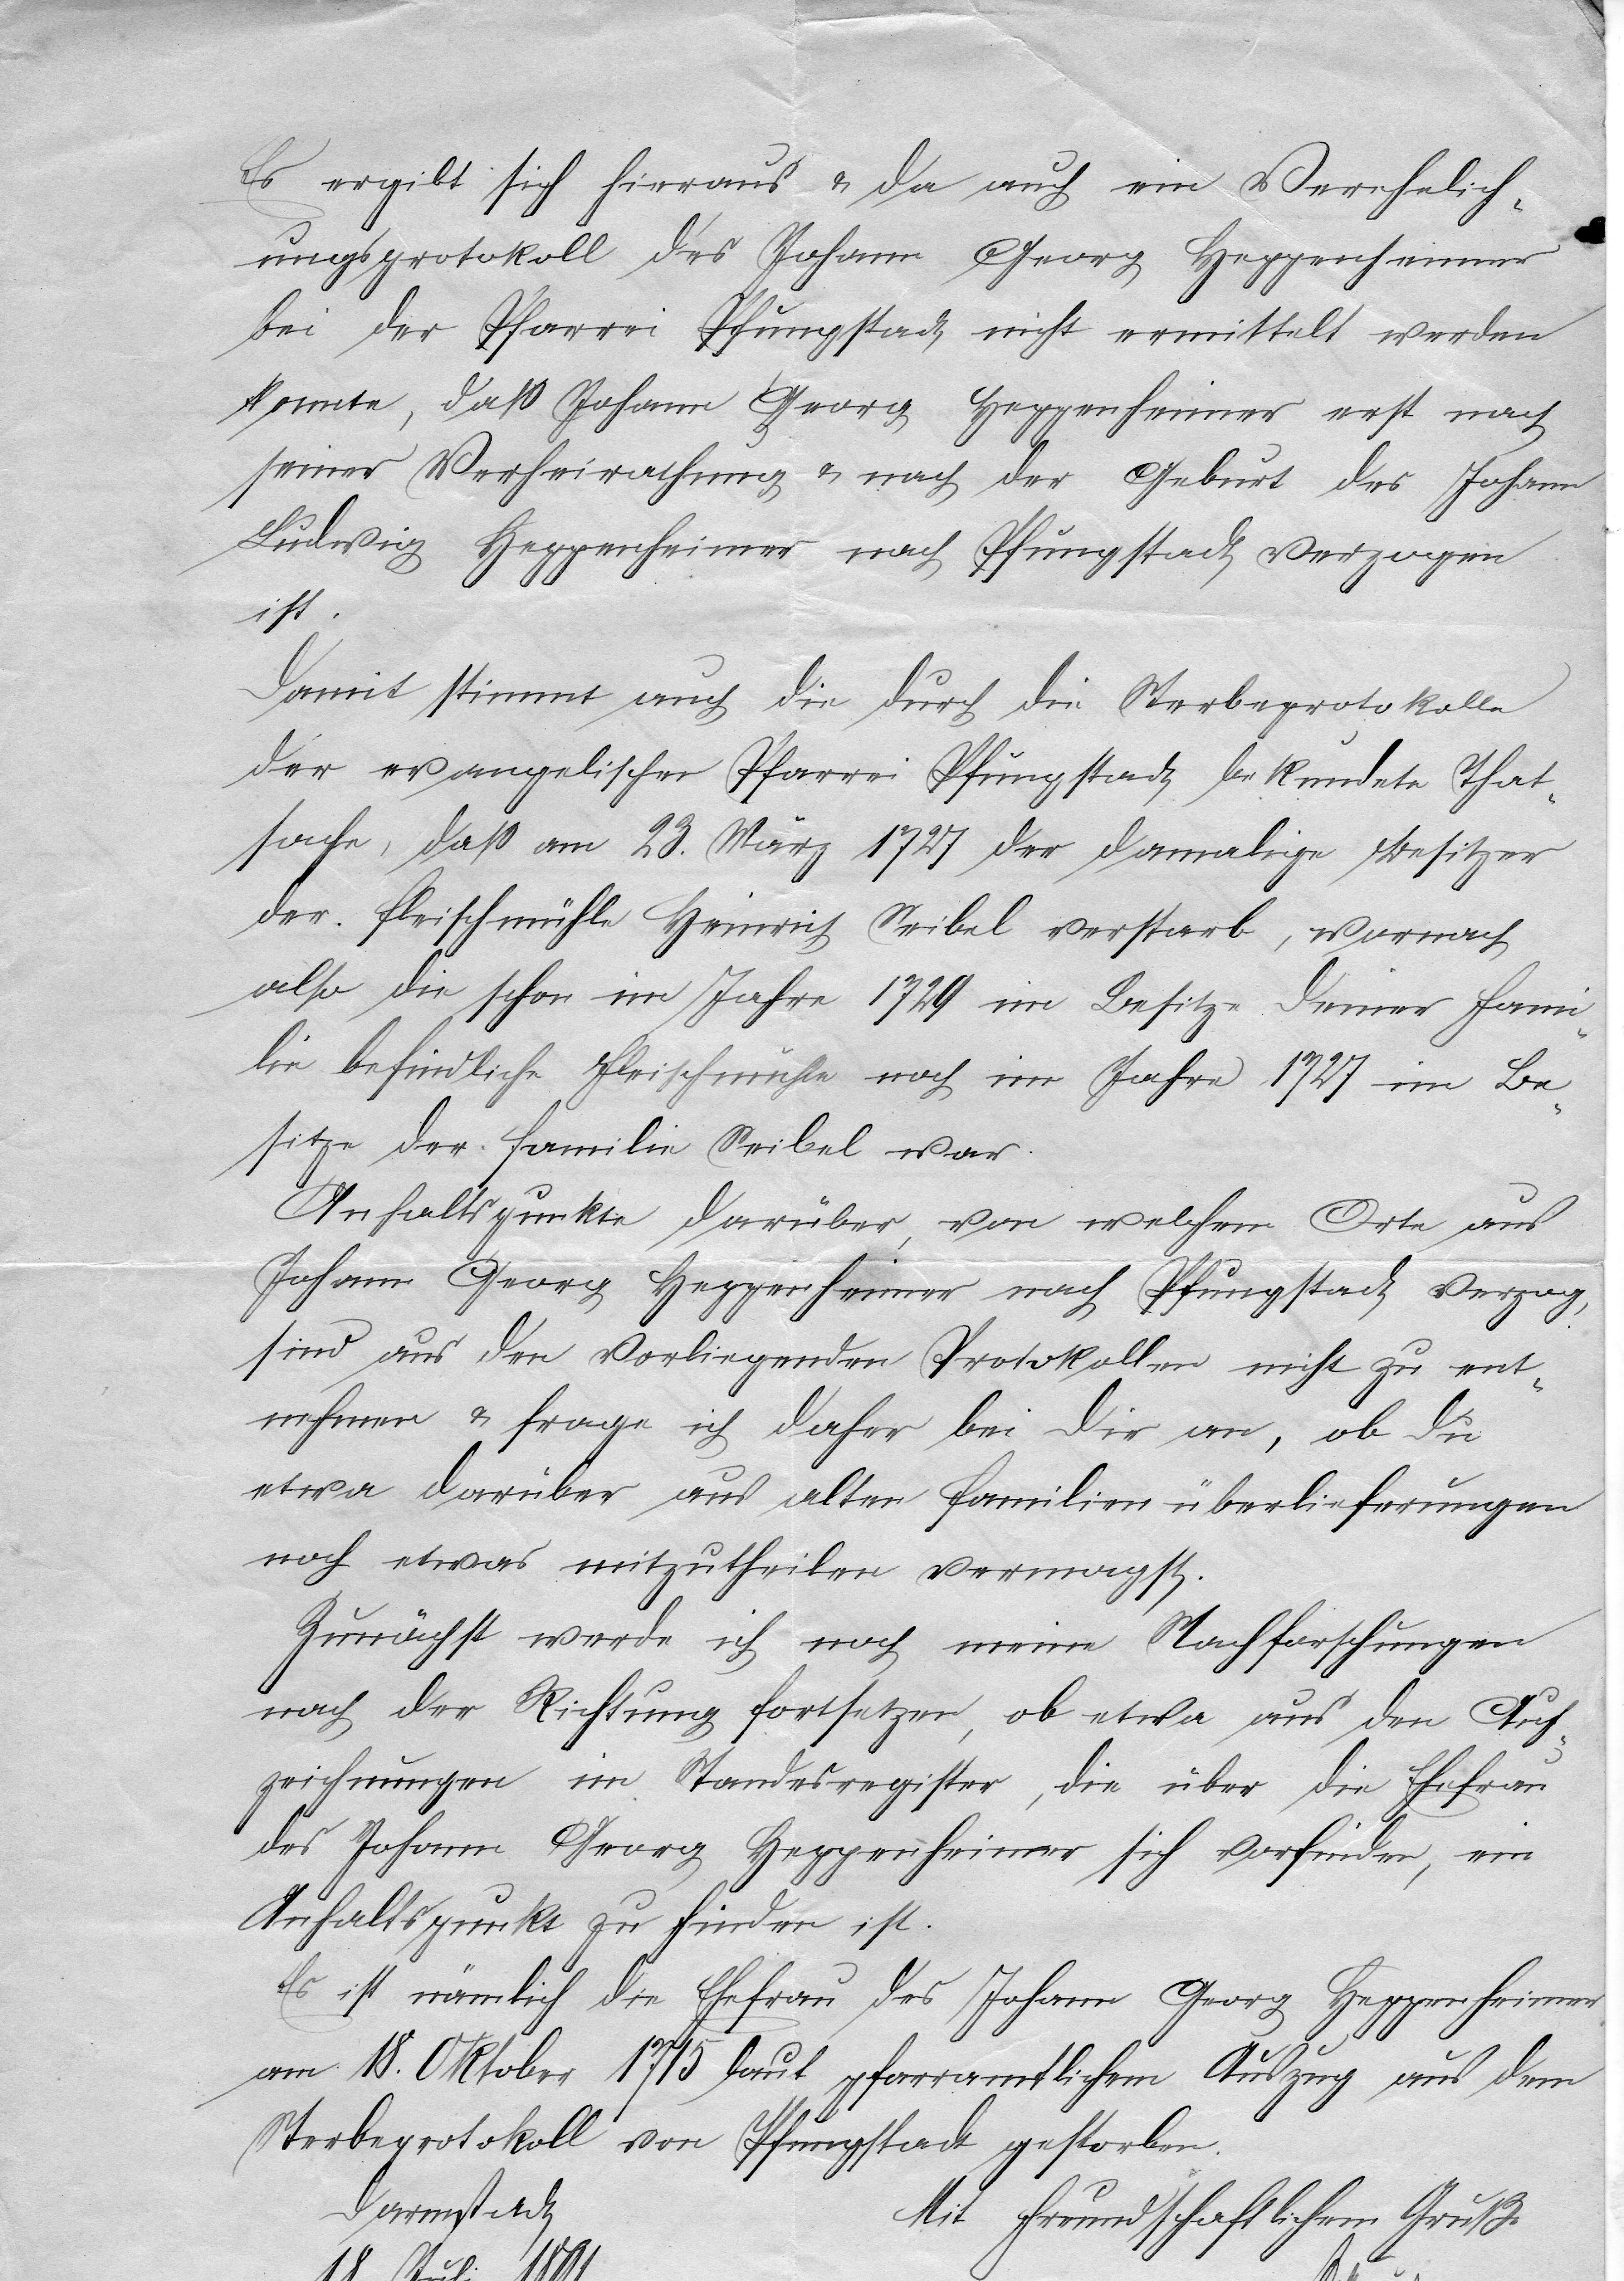 Es ergibt sich hieraus & da auch ein Verehelich-
ungsprotokoll des Johann Georg Heppenheimer
bei der Pfarrei Pfungstadt nicht ermittelt werden
konnte, daß Johann Georg Heppenheimer erst nach
seiner Verheirathung & nach der Geburt des Johann
Ludwig Heppenheimer nach Pfungstadt verzogen
ist.
Damit stimmt auch die durch die Sterbeprotokolle
der evangelischen Pfarrei Pfungstadt bekundete That-
sache, daß am 23. März 1727 der damalige Besitzer
der Fleischmühle Heinrich Seibel verstarb, wornach
also die schon im Jahre 1729 im Besitze Deiner Fami-
lie befindliche Fleischmühle noch im Jahre 1727 im Be-
sitze der Familie Seibel war.
Anhaltspunkte darüber, von welchem Orte aus
Johann Georg Heppenheimer nach Pfungstadt verzog,
sind aus den vorliegenden Protokollen nicht zu ent-
nehmen & frage ich daher bei Dir an, ob Du
etwa darüber aus alten Familienüberlieferungen
noch etwas mitzutheilen vermagst.
Zunächst werde ich noch meine Nachforschungen
nach der Richtung fortsetzen, ob etwa aus den Auf-
zeichnungen im Standesregister, die über die Ehefrau
des Johann Georg Heppenheimer sich vorfinden, ein
Anhaltspunkt zu finden ist.
Es ist nämlich die Ehefrau des Johann Georg Heppenheimer
am 18. Oktober 1715 laut pfarramtlichem Auszug aus dem
Sterbeprotokoll von Pfungstadt gestorben.
Darmstadt Mit freundschaftlichem Gruße
18. Juli 1891